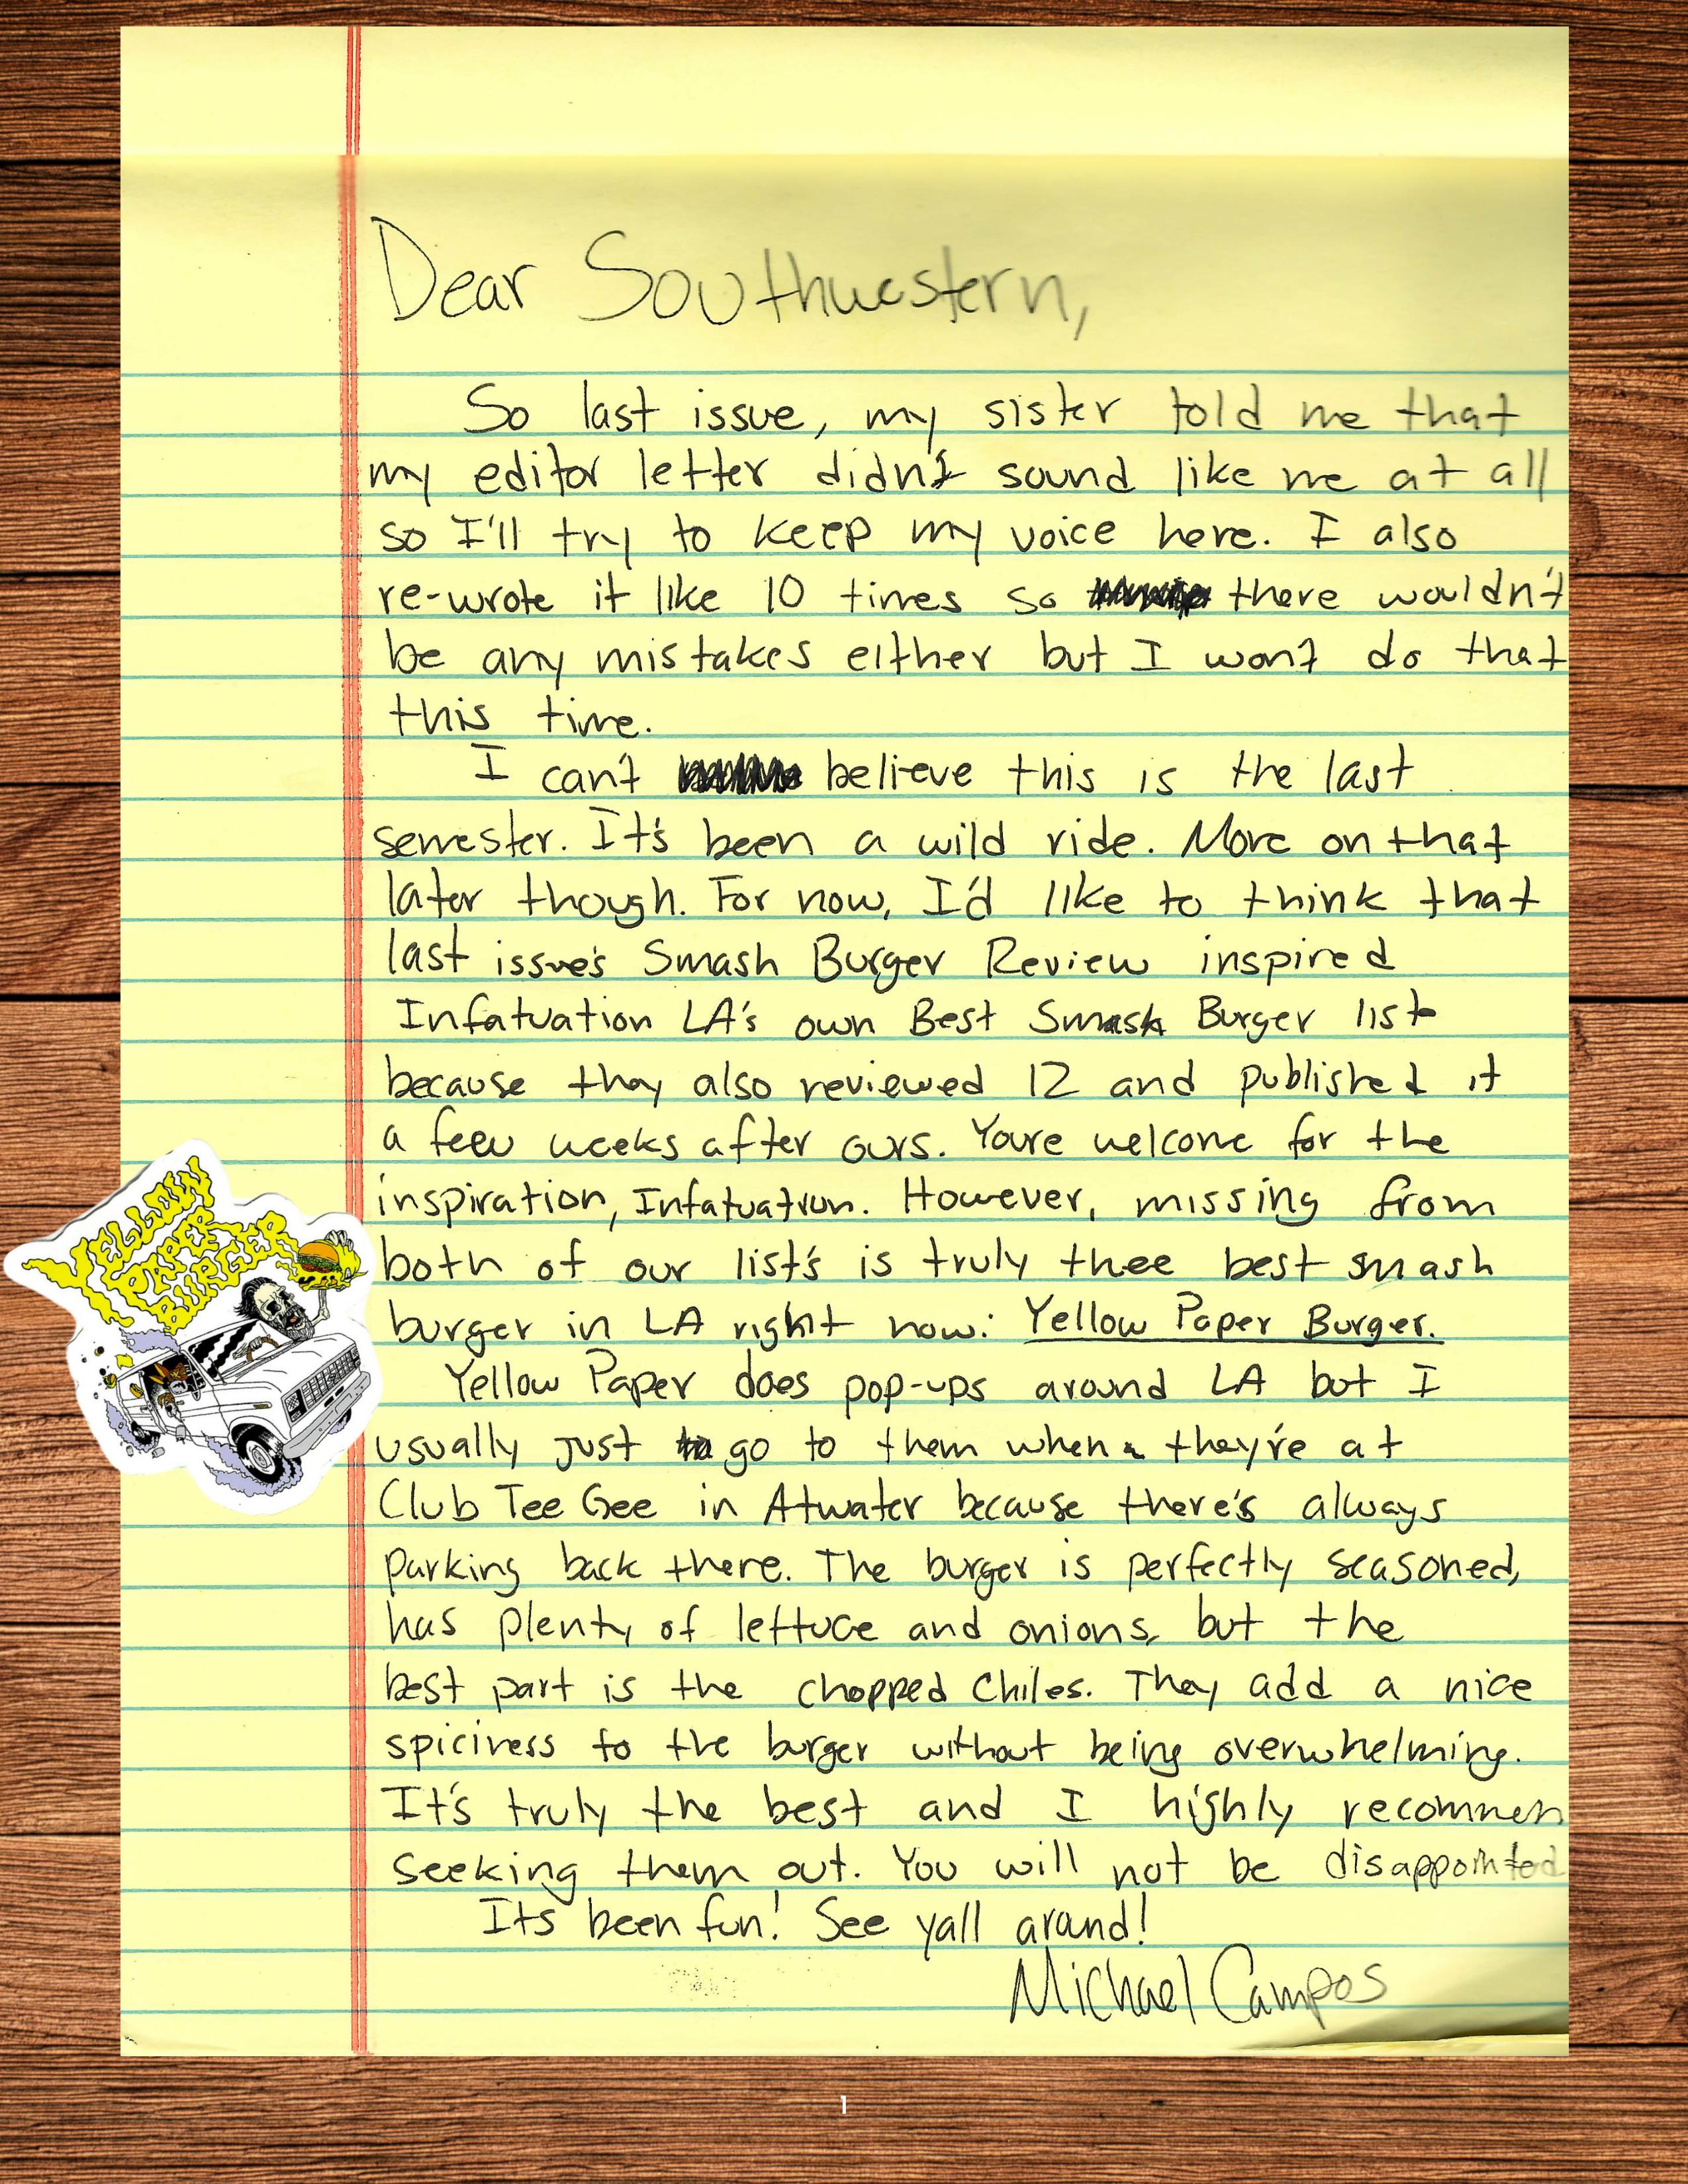 Dear Southwestern,
So last issue, my sister told me that
my editor letter didn't sound like me at all
so I'll try to keep my voice here. I also
re-wrote it like 10 times so there wouldn't
be any mistakes either but I won't do that
this time.
I can't believe this is the last
semester. It's been a wild ride. More on that
later though. For now, I'd like to think that
last issue's Smash Burger Review inspired
Infatuation LA's own Best Smash Burger list
because they also reviewed 12 and published it
a few weeks after ours. Youre welcome for the
inspiration, Infatuation. However, missing from
both of our list's is truly thee best smash
burger in LA right now: Yellow Paper Burger.
Yellow Paper does pop-ups around LA but I
usually just go to them when they're at
Club Tee Gee in Atwater because there's always
parking back there. The burger is perfectly seasoned,
has plenty of lettuce and onions, but the
best part is the chopped chiles. They add a nice
spiciness to the burger without being overwhelming.
It's truly the best and I highly recommen
seeking them out. You will not be disappointed
Its been fun! See yall around!
Michael Campos
YELLOW
PAPER
BURGER
1